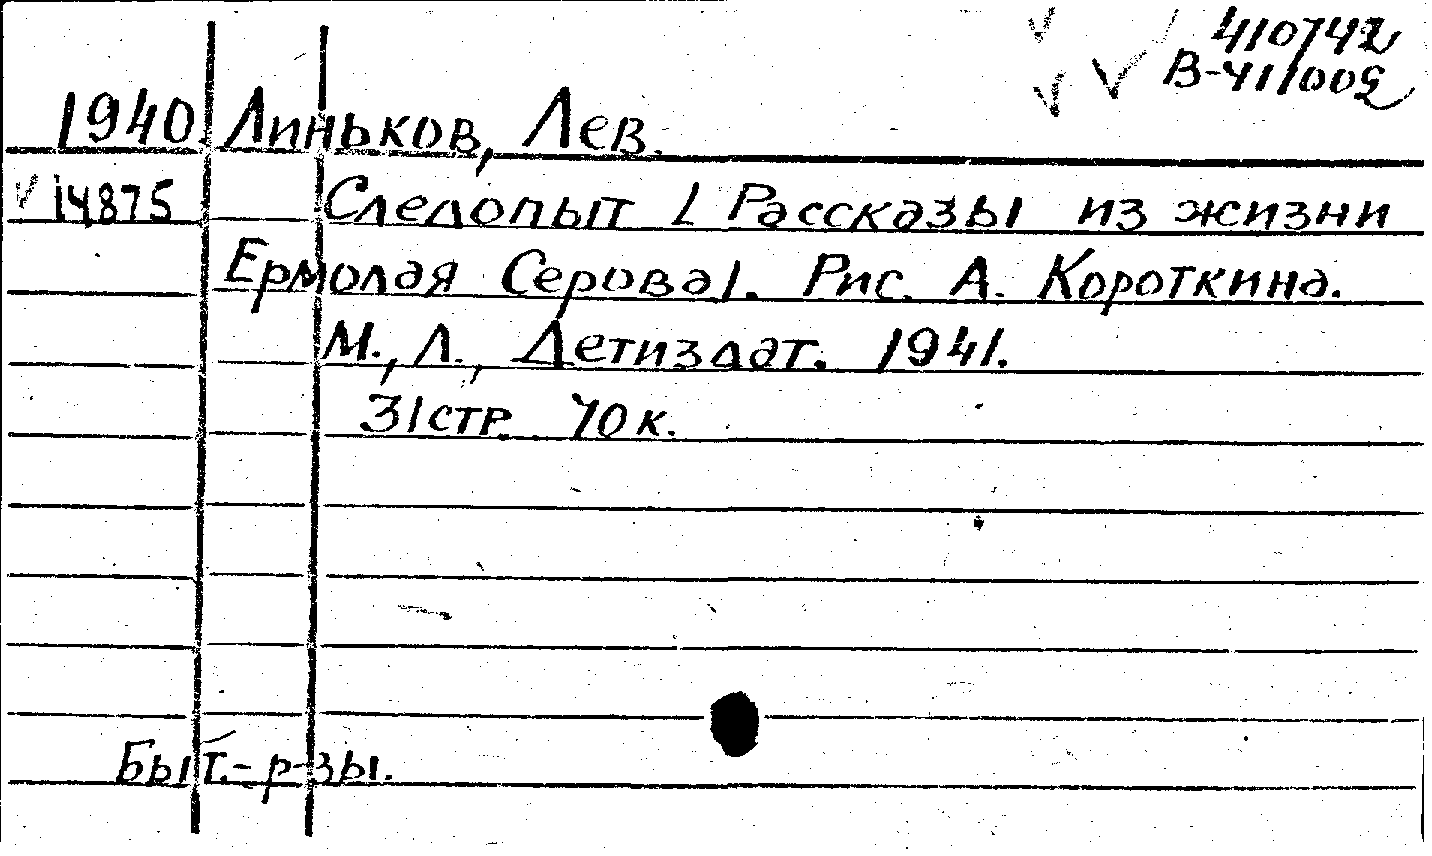 410742
В-411005
1940 Линьков, Лев.
14875 Следопыт [ Рассказы из жизни
Ермолая Серова]. Рис. А. Короткина.
М., Л., Детиздат. 1941.
31 стр. 70 к.
Быт.-р-зы.